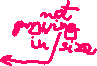 not
growing
in size